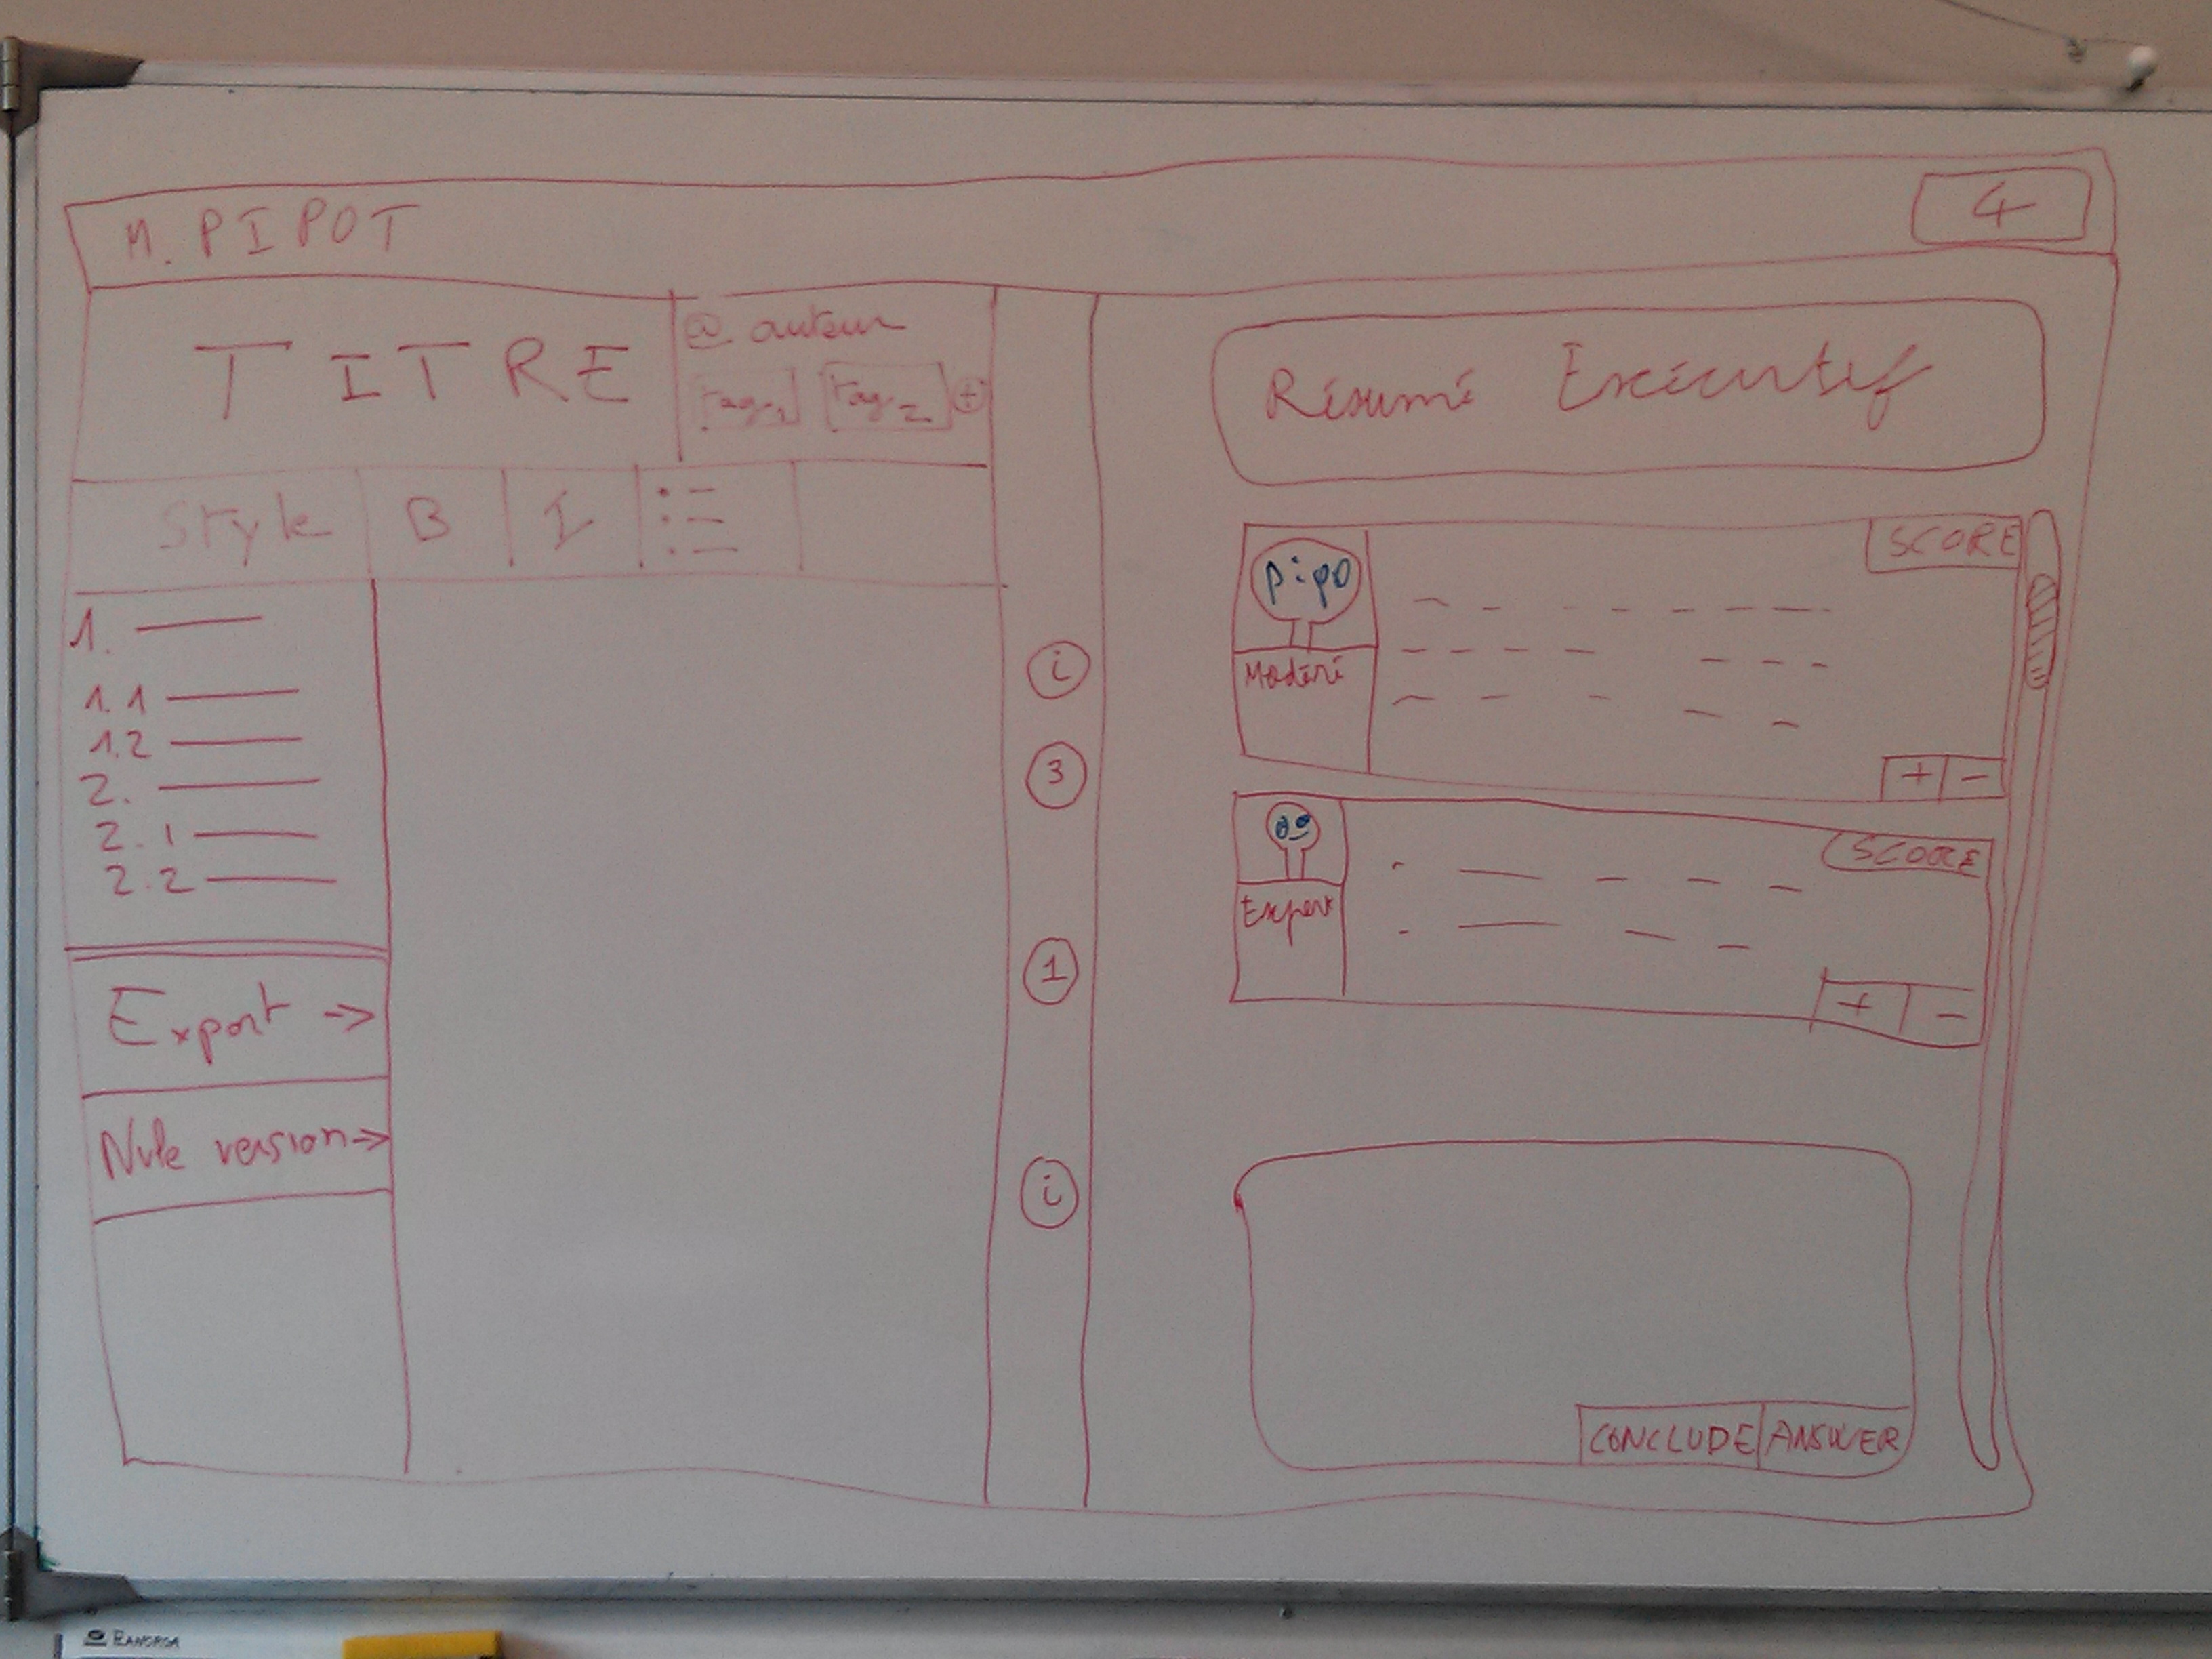 M. PIPOT
4
TITRE
@ auteur
tag 1 tag 2 +
Style B I
1.
1.1
1.2
2.
2.1
2.2
Export →
Nvle version →
i
3
1
i
Résumé Exécutif
SCORE
pipo
Modéré
+ -
SCORE
Expert
+ -
CONCLUDE ANSWER